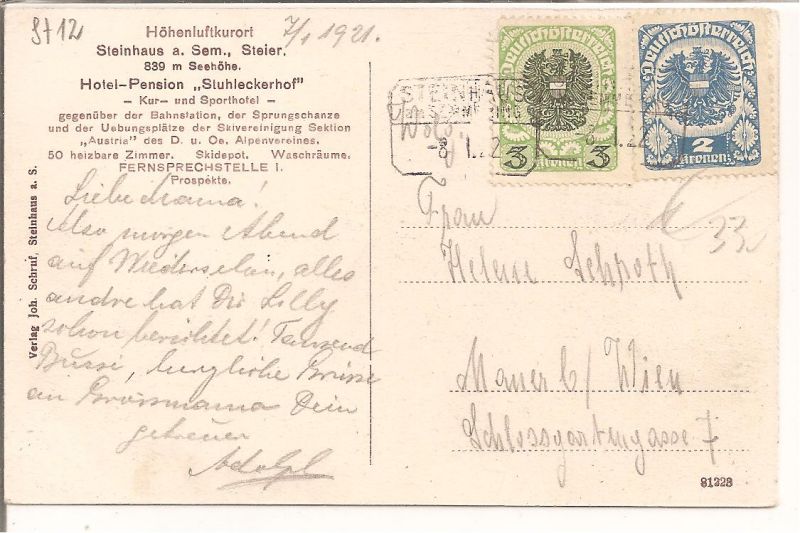 St 12
7/1 1921.
Höhenluftkurort
Steinhaus a. Sem., Steier.
839 m Seehöhe.
Hotel-Pension „Stuhleckerhof"
– Kur- und Sporthotel –
gegenüber der Bahnstation, der Sprungschanze
und der Uebungsplätze der Skivereinigung Sektion
„Austria" des D. u. Oe. Alpenvereines.
50 heizbare Zimmer. Skidepot. Waschräume.
FERNSPRECHSTELLE I.
Prospekte.
Liebe Mama!
Also morgen Abend
auf Wiedersehn, alles
andre hat Dir Lilly
schon berichtet! Tausend
Bussi, herzliche Grüsse
an Grossmama Dein
getreuer
Adolf
Verlag Joh. Schruf, Steinhaus a. S.
Deutschösterreich
3 3
Kronen
Deutschösterreich
2
Kronen
STEINHAUS
Frau
Helene
Mauer b/ Wien
Schlossgartengasse 7
33
81228